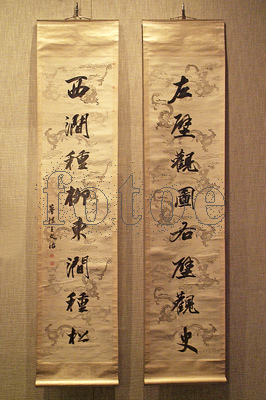 左壁觀圖右壁觀史
西澗種柳東澗種松
fotoe